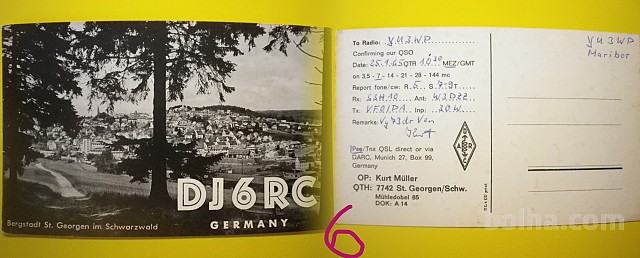 DJ6RC
GERMANY
Bergstadt St. Georgen im Schwarzwald
To Radio: YU3WP
Confirming our QSO
Date: 25.1.65 QTR 10.30 MEZ/GMT
on 3,5 - 7 - 14 - 21 - 28 - 144 mc
Report fone/cw: R. 5 S. 7-9 T.
Rx: Ant: W3DZZ
Tx: Inp: 20W
Remarks: Vy 73 dr
Pse/Tnx QSL direct or via
DARC, Munich 27, Box 99,
Germany
OP: Kurt Müller
QTH: 7742 St. Georgen/Schw.
Mühledobel 85
DOK: A 14
DARC
YU3WP
Maribor
6
bolha.com